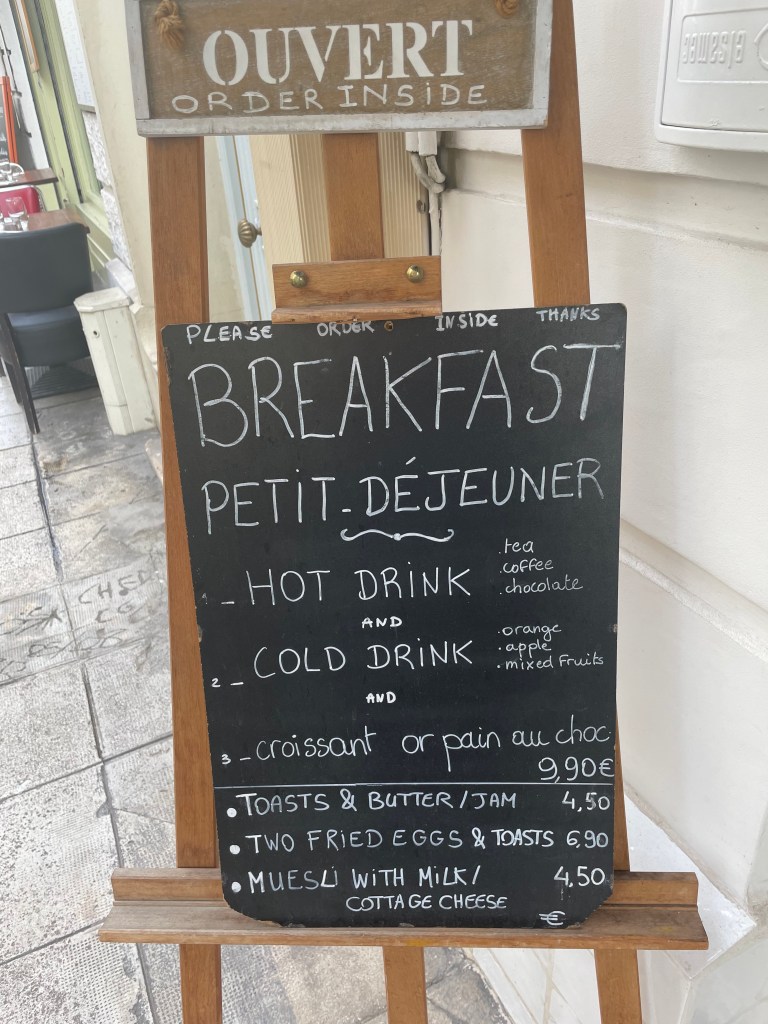 OUVERT
ORDER INSIDE
PLEASE ORDER INSIDE THANKS
BREAKFAST
PETIT-DÉJEUNER
- HOT DRINK
.tea
.coffee
.chocolate
AND
2 - COLD DRINK
.orange
.apple
.mixed Fruits
AND
3 - croissant or pain au choc.
9,90€
• TOASTS & BUTTER/JAM 4,50
• TWO FRIED EGGS & TOASTS 6,90
• MUESLI WITH MILK/ 4,50
COTTAGE CHEESE
€